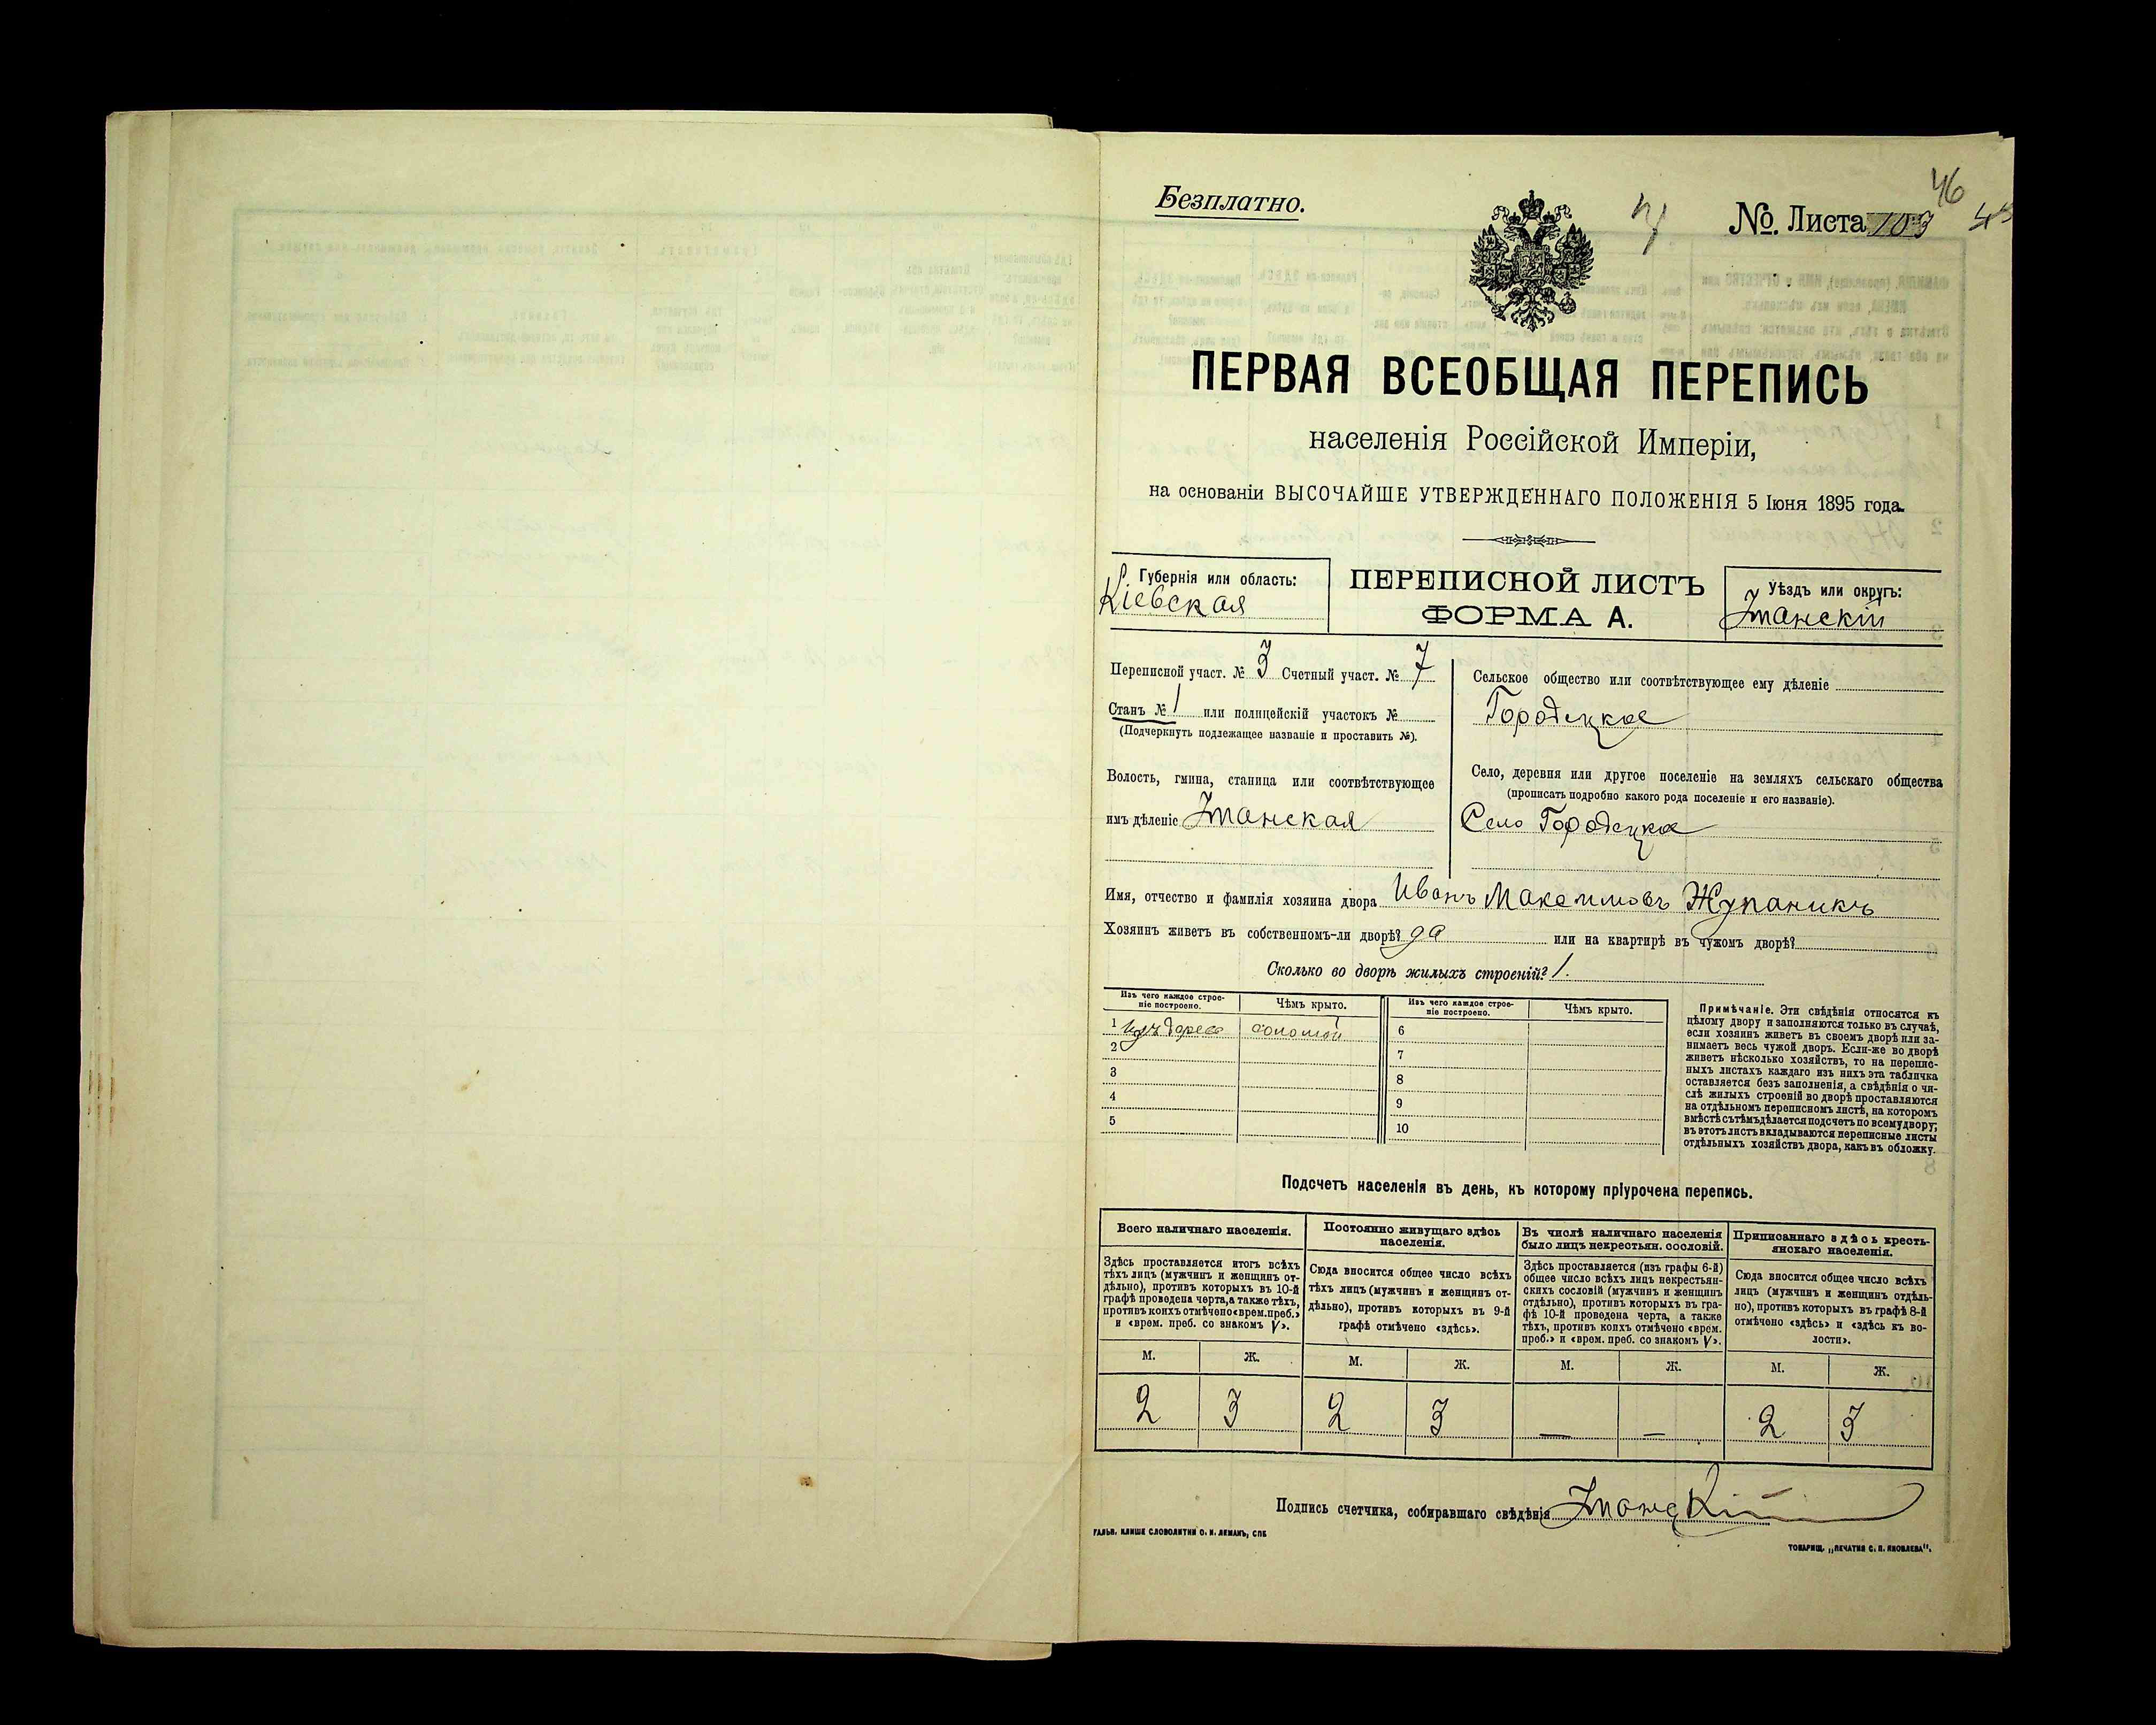 Безплатно.
№. Листа 103
46
ПЕРВАЯ ВСЕОБЩАЯ ПЕРЕПИСЬ
населенія Россійской Имперіи,
на основаніи ВЫСОЧАЙШЕ УТВЕРЖДЕННАГО ПОЛОЖЕНІЯ 5 Іюня 1895 года.
Губернія или область:
Кіевская
ПЕРЕПИСНОЙ ЛИСТЪ
ФОРМА А.
Уѣздъ или округъ:
Уманскій
Переписной участ. № 3 Счетный участ. № 7
Станъ № 1 или полицейскій участокъ №
(Подчеркнуть подлежащее названіе и проставить №).
Волость, гмина, станица или соотвѣтствующее
имъ дѣленіе Уманская
Сельское общество или соотвѣтствующее ему дѣленіе
Городецкое
Село, деревня или другое поселеніе на земляхъ сельскаго общества
(прописать подробно какого рода поселеніе и его названіе).
Село Городецкое
Имя, отчество и фамилія хозяина двора Иванъ Максимовъ Жупаникъ
Хозяинъ живетъ въ собственномъ-ли дворѣ? да или на квартирѣ въ чужомъ дворѣ?
Сколько во дворѣ жилыхъ строеній? 1.
Изъ чего каждое строе-
ніе построено.
Чѣмъ крыто.
Изъ чего каждое строе-
ніе построено.
Чѣмъ крыто.
1 Изъ дерева соломой
2
3
4
5
6
7
8
9
10
Примѣчаніе. Эти свѣдѣнія относятся къ
цѣлому двору и заполняются только въ случаѣ,
если хозяинъ живетъ въ своемъ дворѣ или за-
нимаетъ весь чужой дворъ. Если-же во дворѣ
живетъ нѣсколько хозяйствъ, то на перепис-
ныхъ листахъ каждаго изъ нихъ эта табличка
оставляется безъ заполненія, а свѣдѣнія о чи-
слѣ жилыхъ строеній во дворѣ проставляются
на отдѣльномъ переписномъ листѣ, на которомъ
вмѣстѣ съ тѣмъ дѣлается подсчетъ по всему двору;
въ этотъ листъ вкладываются переписные листы
отдѣльныхъ хозяйствъ двора, какъ въ обложку.
Подсчетъ населенія въ день, къ которому пріурочена перепись.
Всего наличнаго населенія.
Здѣсь проставляется итогъ всѣхъ
тѣхъ лицъ (мужчинъ и женщинъ от-
дѣльно), противъ которыхъ въ 10-й
графѣ проведена черта, а также тѣхъ,
противъ коихъ отмѣчено «врем. преб.»
и «врем. преб. со знакомъ V».
М. Ж.
2 3
Постоянно живущаго здѣсь
населенія.
Сюда вносится общее число всѣхъ
тѣхъ лицъ (мужчинъ и женщинъ от-
дѣльно), противъ которыхъ въ 9-й
графѣ отмѣчено «здѣсь».
М. Ж.
2 3
Въ числѣ наличнаго населенія
было лицъ некрестьян. сословій.
Здѣсь проставляется (изъ графы 6-й)
общее число всѣхъ лицъ некрестьян-
скихъ сословій (мужчинъ и женщинъ
отдѣльно), противъ которыхъ въ гра-
фѣ 10-й проведена черта, а также
тѣхъ, противъ коихъ отмѣчено «врем.
преб.» и «врем. преб. со знакомъ V».
М. Ж.
— —
Приписаннаго здѣсь кресть-
янскаго населенія.
Сюда вносится общее число всѣхъ
лицъ (мужчинъ и женщинъ отдѣль-
но), противъ которыхъ въ графѣ 8-й
отмѣчено «здѣсь» и «здѣсь къ во-
лости».
М. Ж.
2 3
Подпись счетчика, собиравшаго свѣдѣнія Уманскій
ГАЛЬВ. КЛИШЕ СЛОВОЛИТНИ О. И. ЛЕМАНЪ, СПБ
ТОВАРИЩ. „ПЕЧАТНЯ С. П. ЯКОВЛЕВА".